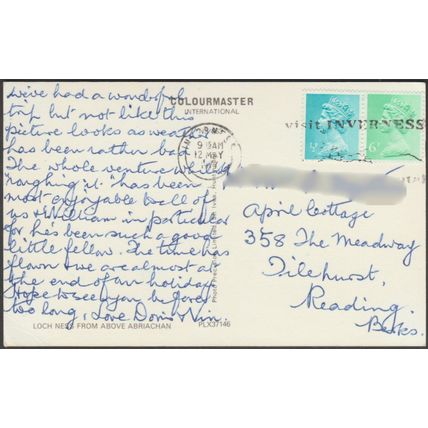 We've had a wonderful
trip but not like this
picture looks as weather
has been rather bad.
The whole venture while
"roughing it" has been
most enjoyable by all of
us & William in particular
for he's been such a good
little fellow. The time has
flown & we are almost at
the end of our holiday.
Hope to see you before
too long, Love Doris & Vin.
LOCH NESS FROM ABOVE ABRIACHAN
PLX37146
COLOURMASTER
INTERNATIONAL
9 30AM
12 MAY
visit INVERNESS
6P
April Cottage
358 The Meadway
Tilehurst,
Reading.
Berks.